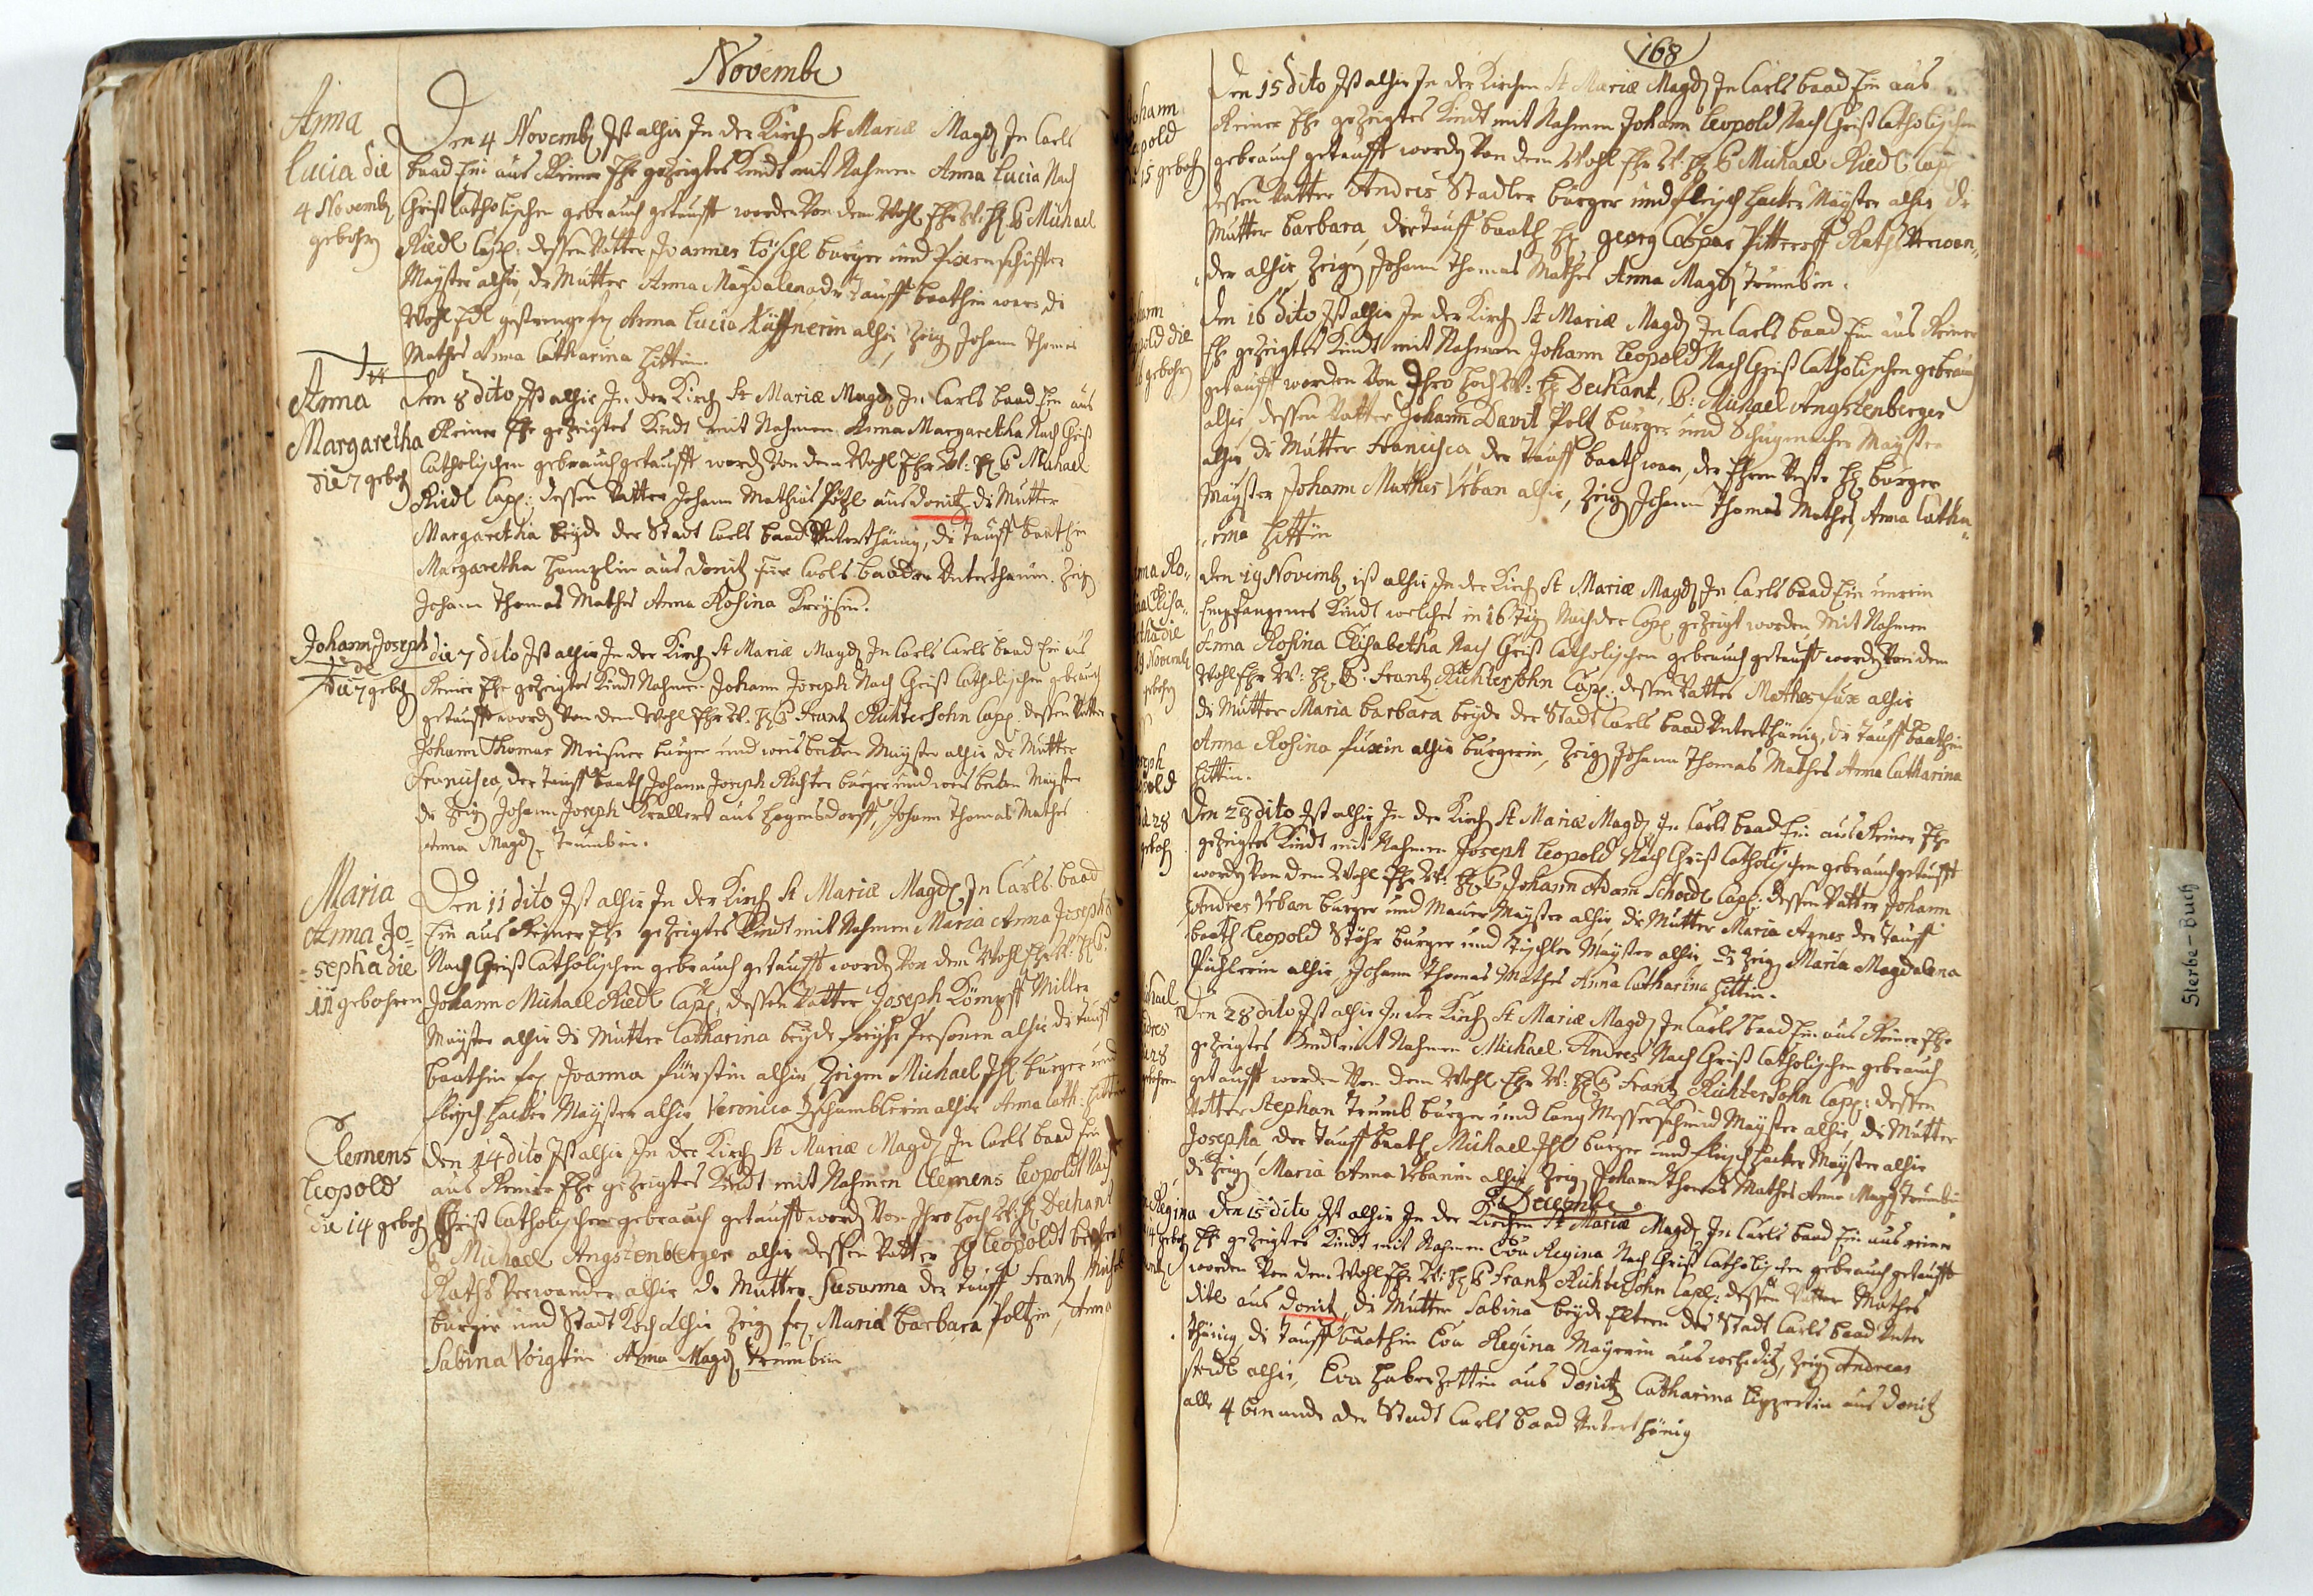 Novembr
Anna
Lucia die
4 Novemb
gebohrn
Den 4 Novemb Ist alhir In der Kirch St Mariæ Magd In Carls
baad Ein aus Reiner Ehe gezeigtes Kindt mit Nahmen Anna Lucia Nach
Christ Catholischen gebrauch getaufft worden Von dem Wohl Ehr W: H P Michael
Riedl Cap: dessen Vatter Joannes Löschl burger und Pixenschiffter
Mayster alhir, die Mutter Anna Magdalena die Tauff baathin ware die
Wohl Edl gestrenge fr Anna Lucia alhir, Zeig Johann Thomas
Mathes Anna Catharina Hittin.
Anna
Margaretha
die 7 geboh
Den 8 dito Ist alhir In der Kirch St Mariæ Magd In Carls baad Ein aus
Reiner Ehe gezeigtes Kindt mit Nahmen Anna Margaretha Nach Christ
Catholischen gebrauch getaufft word Von dem Wohl Ehr W: H P Michael
Riedl Cap: dessen Vatter Johann Mathias Pözl aus donitz die Mutter
Margaretha beyde der Stadt Carls baad Unterthänig, die Tauff baathin
Margaretha aus donitz Carls baader Unterthanin. Zeig
Johann Thomas Mathes Anna Rosina
Johann Joseph
die 7 geboh
die 7 dito Ist alhir In der Kirch St Mariæ Magd In Carls Carls baad Ein aus
Reiner Ehe gezeigtes Kindt Nahmen Johann Joseph Nach Christ Catholischen gebrauch
getaufft word Von dem Wohl Ehr W: H P Frantz Richtersohn Cap: dessen Vatter
Johann Thomas Meisner burger und weis becken Mayster alhir die Mutter
Francisca, der Tauff baath Johann Joseph Richter burger und weis becken Mayster
die Zeig Johann Joseph Krallert aus Johann Thomas Mathes
Anna Magd Trumbin.
Maria
Anna Jo=
=sepha die
11 gebohren
Den 11 dito Ist alhir In der Kirch St Mariæ Magd In Carls baad
Ein aus Reiner Ehe gezeigtes Kindt mit Nahmen Maria Anna Josepha
Nach Christ Catholischen gebrauch getaufft word Von dem Wohl Ehr W: H P:
Johann Michael Riedl Cap, dessen Vatter Joseph Kömpff Miller
Mayster alhir die Mutter Catharina beyde freyhe Personen alhir die Tauff
baathin fr Joanna fürstin alhir Zeigen Michael Ihl burger und
fleisch hacker Mayster alhir, Veronica Zschamblerin alhir Anna Cath: Hittin
Clemens
Leopold
die 14 geboh
Den 14 dito Ist alhir In der Kirch St Mariæ Magd In Carls baad Ein
aus Reiner Ehe gezeigtes Kindt mit Nahmen Clemens Leopoldt Nach
Christ Catholischen gebrauch getaufft word Von Ihro Hoch W: H Dechant
P Michael Angstenberger alhir dessen Vatter H Leopoldt
Raths Verwander alhir die Mutter Susanna der Tauff Frantz
burger und Stadt Koch alhir Zeig fr Maria barbara Poltzin, Anna
Sabina Voigtin Anna Magd Trumbin
168
Johann
Leopold
15 geboh
Den 15 dito Ist alhir In der Kirchen St Mariæ Magd In Carls baad Ein aus
Reiner Ehe gezeigtes Kindt mit Nahmen Johann Leopold Nach Christ Catholischen
gebrauch getaufft worden Von dem Wohl Ehr W: H P Michael Riedl Cap
dessen Vatter Andres Stadler burger und fleisch hacker Mayster alhir die
Mutter barbara, der Tauff baath H georg Caspar Pitteroff Raths Verwan=
der alhir, Zeig Johann Thomas Mathes Anna Magd Trumbin.
Leopold die
gebohrn
Den 16 dito Ist alhir In der Kirch St Mariæ Magd In Carls baad Ein aus Reiner
Ehe gezeigtes Kindt mit Nahmen Johann Leopold Nach Christ Catholischen gebrauch
getaufft worden Von Ihro Hoch W: H Dechant, P: Michael Angstenberger
alhir, dessen Vatter Johann Davit Polz burger und Schugmacher Mayster
alhir die Mutter Francisca der Tauff baath war, der Ehren Veste H burger
Mayster Johann Mathes Urban alhir, Zeig Johann Thomas Mathes, Anna Catha=
rina Hittin
Anna Ro=
sina Elisa
betha die
19 Novemb
geboh
Den 19 Novemb ist alhir In der Kirch St Mariæ Magd In Carls baad Ein unrein
Empfangenes Kindt welches in 16 Nach der Cop gezeigt worden Mit Nahmen
Anna Rosina Elisabetha Nach Christ Catholischen gebrauch getaufft word Von dem
Wohl Ehr W: H P: Frantz Richtersohn Cap: dessen Vatter Mathes fux alhir
die Mutter Maria barbara beyde der Stadt Carls baad Unterthänig, die Tauff baathin
Anna Rosina fuxin alhir burgerin, Zeig Johann Thomas Mathes Anna Catharina
Hittin.
Joseph
Leopold
28
geboh
Den 28 dito Ist alhir In der Kirch St Mariæ Magd In Carls baad Ein aus Reiner Ehe
gezeigtes Kindt mit Nahmen Joseph Leopold Nach Christ Catholischen gebrauch getaufft
word Von dem Wohl Ehr W: H P Johann Adam Schedl Cap: dessen Vatter Johann
Andres Urban burger und Maurer Mayster alhir, die Mutter Maria Agnes der Tauff
baath Leopold Stöhr burger und Tischler Mayster alhir die Zeig Maria Magdalena
Pichlerin alhir, Johann Thomas Mathes Anna Catharina Hittin.
Michael
Andres
28
gebohren
Den 28 dito Ist alhir In der Kirch St Mariæ Magd In Carls baad Ein aus Reiner Ehe
gezeigtes Kindt mit Nahmen Michael Andres Nach Christ Catholischen gebrauch
getaufft worden Von dem Wohl Ehr W: H P Frantz Richtersohn Cap: dessen
Vatter Stephan Trumb burger und lang Messerschmid Mayster alhir, die Mutter
Josepha, der Tauff baath Michael Ihl burger und fleisch hacker Mayster alhir
die Zeig Maria Anna Urbanin alhir, Zeig Johann Thomas Mathes Anna Magd Trumbin
Decembr
Regina
14 geboh
Den 15 dito Ist alhir In der Kirchen St Mariæ Magd In Carls baad Ein aus reiner
Ehe gezeigtes Kindt mit Nahmen Eva Regina Nach Christ Catholischen gebrauch getaufft
worden Von dem Wohl Ehr W: H P Frantz Richtersohn Cap: dessen Vatter Mathes
ditl aus donitz, die Mutter Sabina beyde Eltern der Stadt Carls baad Unter
thänig, die Tauff baathin Eva Regina Mayerin aus, Zeig Andreas
alhir, Eva Haberzettin aus donitz Catharina Lippertin aus donitz
alle 4 der Stadt Carls baad Unterthänig
Sterbe-Buch